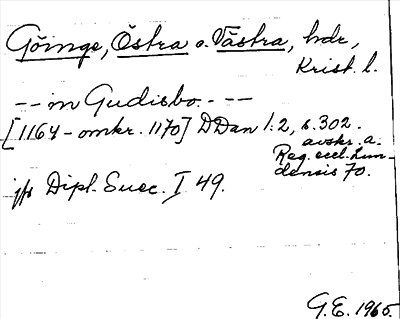 Göinge, Östra o. Västra, hdr,
Krist. l.
-- in Gudisbo. - --
[1164 - omkr. 1170] DDan 1:2, s. 302.
avskr. a.
Reg. eccl. Lun-
densis 70.
jfr Dipl. Suec. I 49.
G.E. 1965.